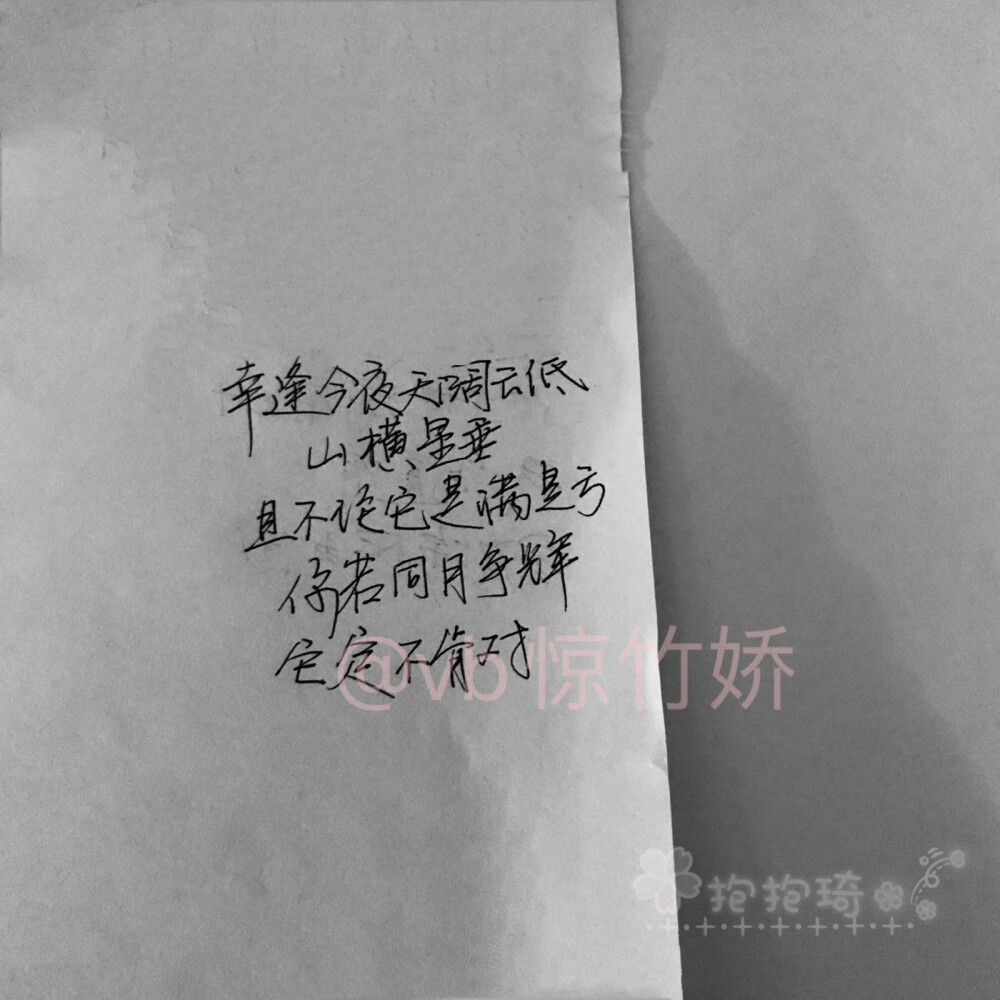 幸逢今夜天阔云低
山横星垂
且不论它是满是亏
你若同月争辉
它定不肯对
@vb惊竹娇
抱抱琦